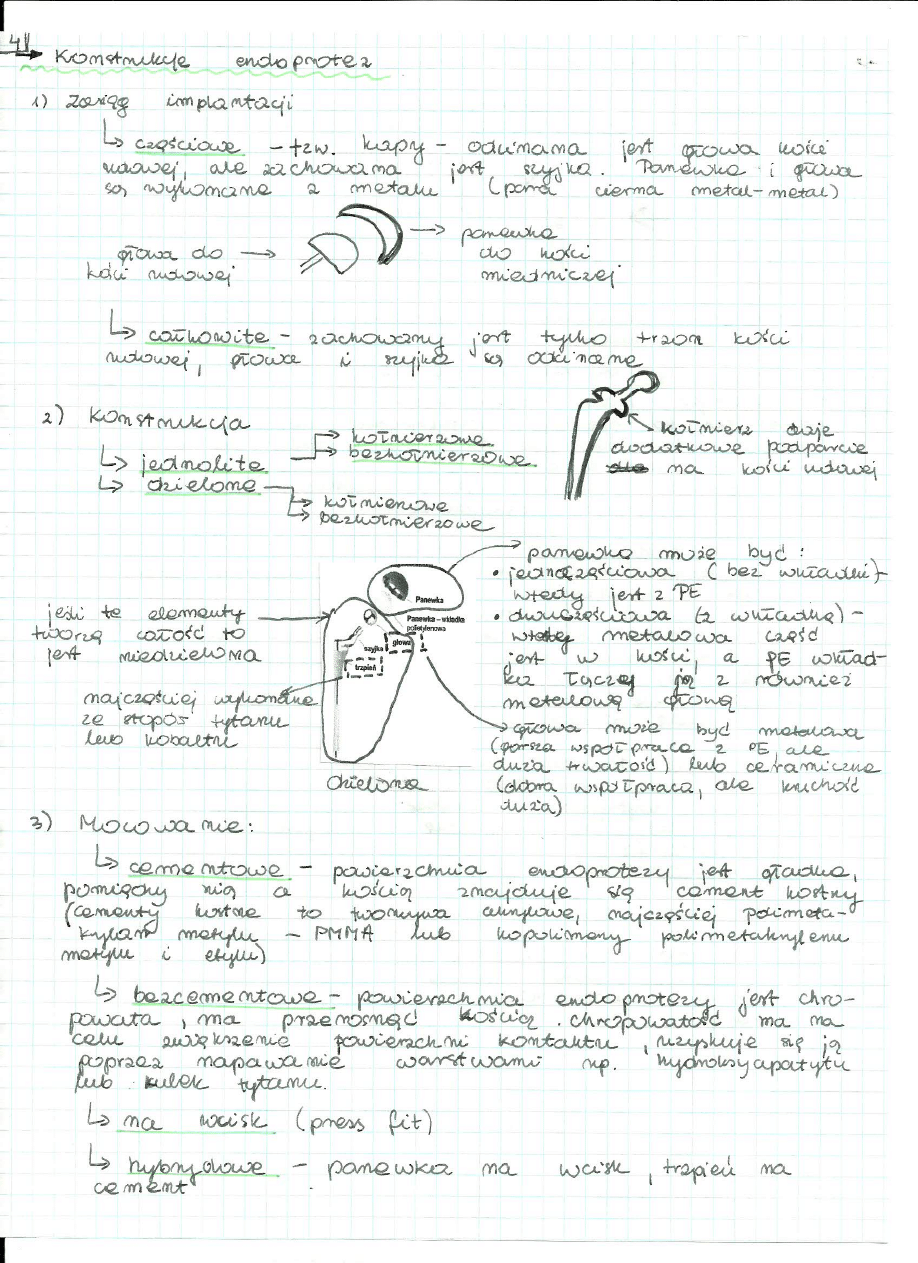 41
→ Konstrukcje endoprotez
1) Zasięg implantacji
↳ częściowe – tzw. kapy – odcinana jest głowa kości
udowej, ale zachowana jest szyjka. Panewka i głowa
są wykonane z metalu (para cierna metal-metal)
głowa do
kości udowej
panewka
do kości
miednicznej
↳ całkowite – zachowany jest tylko trzon kości
udowej, głowa i szyjka są odcinane
2) Konstrukcja
↳ jednolite
kołnierzowe
bezkołnierzowe
↳ dzielone
kołnierzowe
bezkołnierzowe
kołnierz daje
dodatkowe podparcie
na kości udowej
jeśli te elementy
tworzą całość to
jest niedzielona
najczęściej wykonane
ze stopów tytanu
lub kobaltu
Panewka
Panewka – wkładka
polietylenowa
głowa
szyjka
trzpień
dzielona
panewka może być:
• jednoczęściowa (bez wkładki) –
wtedy jest z PE
• dwuczęściowa (z wkładką) –
wtedy metalowa część
jest w kości, a PE wkład-
ka łączy się z również
metalową głową
głowa może być metalowa
(gorsza współpraca z PE, ale
duża trwałość) lub ceramiczna
(dobra współpraca, ale kruchość
duża)
3) Mocowanie:
↳ cementowe – powierzchnia endoprotezy jest gładka,
pomiędzy nią a kością znajduje się cement kostny
(cementy kostne to tworzywa akrylowe, najczęściej polimeta-
krylan metylu – PMMA lub kopolimery polimetakrylenu
metylu i etylu)
↳ bezcementowe – powierzchnia endoprotezy jest chro-
powata, ma przerosnąć kością. chropowatość ma na
celu zwiększenie powierzchni kontaktu, uzyskuje się ją
poprzez napawanie warstwami np. hydroksyapatytu
lub kulek tytanu.
↳ na wcisk (press fit)
↳ hybrydowe – panewka na wcisk, trzpień na
cement